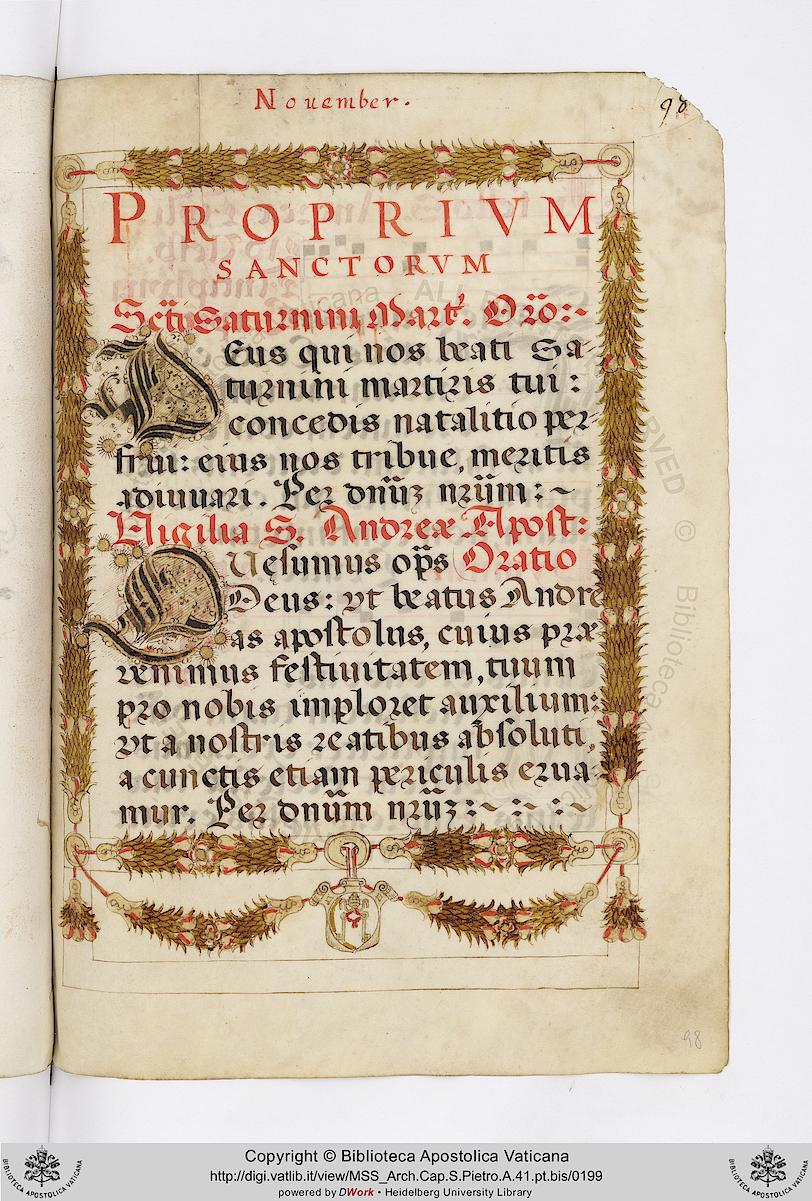 Nouember.
98
PROPRIVM
SANCTORVM
Scti Saturnini Mart. Oro:~
Deus qui nos beati Sa-
turnini martiris tui:
concedis natalitio per-
frui: eius nos tribue, meritis
adiuuari. Per dnũz nrũm:~
Uigilia S. Andreæ Apost:
Quęsumus op̃s Oratio
Deus: vt beatus Andrę
as apostolus, cuius præ
venimus festiuitatem, tuum
pro nobis imploret auxilium:
vt a nostris reatibus absoluti,
a cunctis etiam periculis erua-
mur. Per dnũm nrũz:~:~:~
98
Copyright © Biblioteca Apostolica Vaticana
http://digi.vatlib.it/view/MSS_Arch.Cap.S.Pietro.A.41.pt.bis/0199
powered by DWork • Heidelberg University Library
BIBLIOTECA APOSTOLICA VATICANA
BIBLIOTECA APOSTOLICA VATICANA